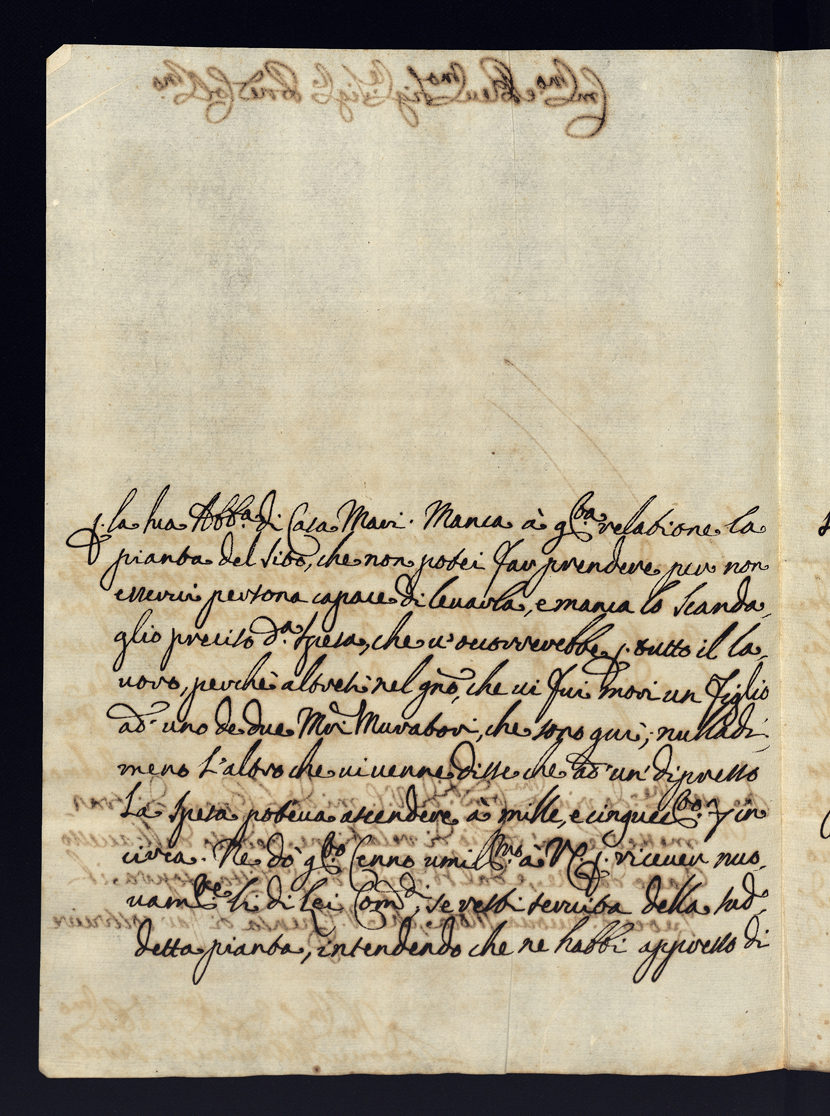 p. la sua Abb.a di Casa Mari. Manca à q.sta relatione la
pianta del sito, che non potei far prendere per non
esservi persona capace di levarla, e manca lo scanda,
glio preciso d.a spesa, che v'occorrerebbe p. tutto il la,
voro, perche altresi nel gno, che vi fui morì un figlio
ad' uno de due Mri Muratori, che sono qui; nulladi,
meno l'altro che vi venne disse che ad' un' dipresso
la spesa poteva ascendere à mille, e cinquec.to in
circa. Ne dò q.sto Cenno umil.mo à V.E. p. ricever nuo,
vam.te li di Lei Com.di, se resti servita della sud,
detta pianta, intendendo che ne habbi appresso di